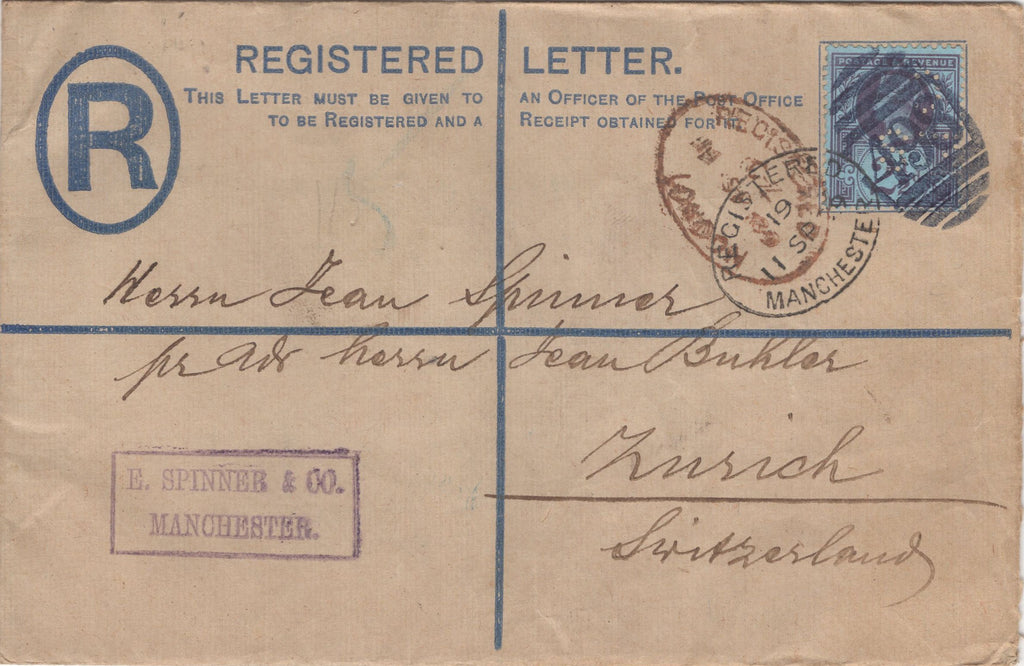 REGISTERED LETTER.
THIS LETTER MUST BE GIVEN TO AN OFFICER OF THE POST OFFICE
TO BE REGISTERED AND A RECEIPT OBTAINED FOR IT.
R
POSTAGE & REVENUE
REGISTERED
LONDON
REGISTERED
19
11 SP
MANCHESTER
Herrn Jean Spinner
pr adr herrn Jean Buhler
Zurich
Switzerland
E. SPINNER & CO.
MANCHESTER.